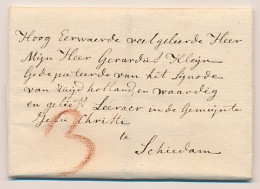 Hoog Eerwaerde veel geleerde Heer
Mijn Heer Gerardus Kleijn
Gedeputeerde van het Synode
van Zuijd holland, en waardig
en geliefd Leeraer in de Gemeijnte
Jesu Christi
te
Schiedam